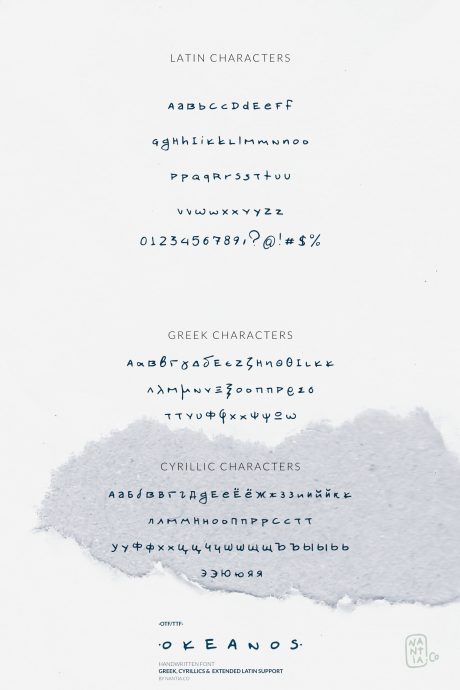 LATIN CHARACTERS
AaBbCcDdEeFf
GgHhIiKkLlMmNnOo
PpQqRrSsTtUu
VvWwXxYyZz
0123456789,?@!#$%
GREEK CHARACTERS
ΑαΒβΓγΔδΕεΖζΗηΘθΙιΚκ
ΛλΜμΝνΞξΟοΠπΡρΣσ
ΤτΥυΦφΧχΨψΩω
CYRILLIC CHARACTERS
АаБбВвГгДдЕеЁёЖжЗзИиЙйКк
ЛлМмНнОоПпРрСсТт
УуФфХхЦцЧчШшЩщЪъЫыЬь
ЭэЮюЯя
·OTF/TTF·
·OKEANOS·
HANDWRITTEN FONT
GREEK, CYRILLICS & EXTENDED LATIN SUPPORT
BY NANTIA.CO
NAN
TIA
.Co